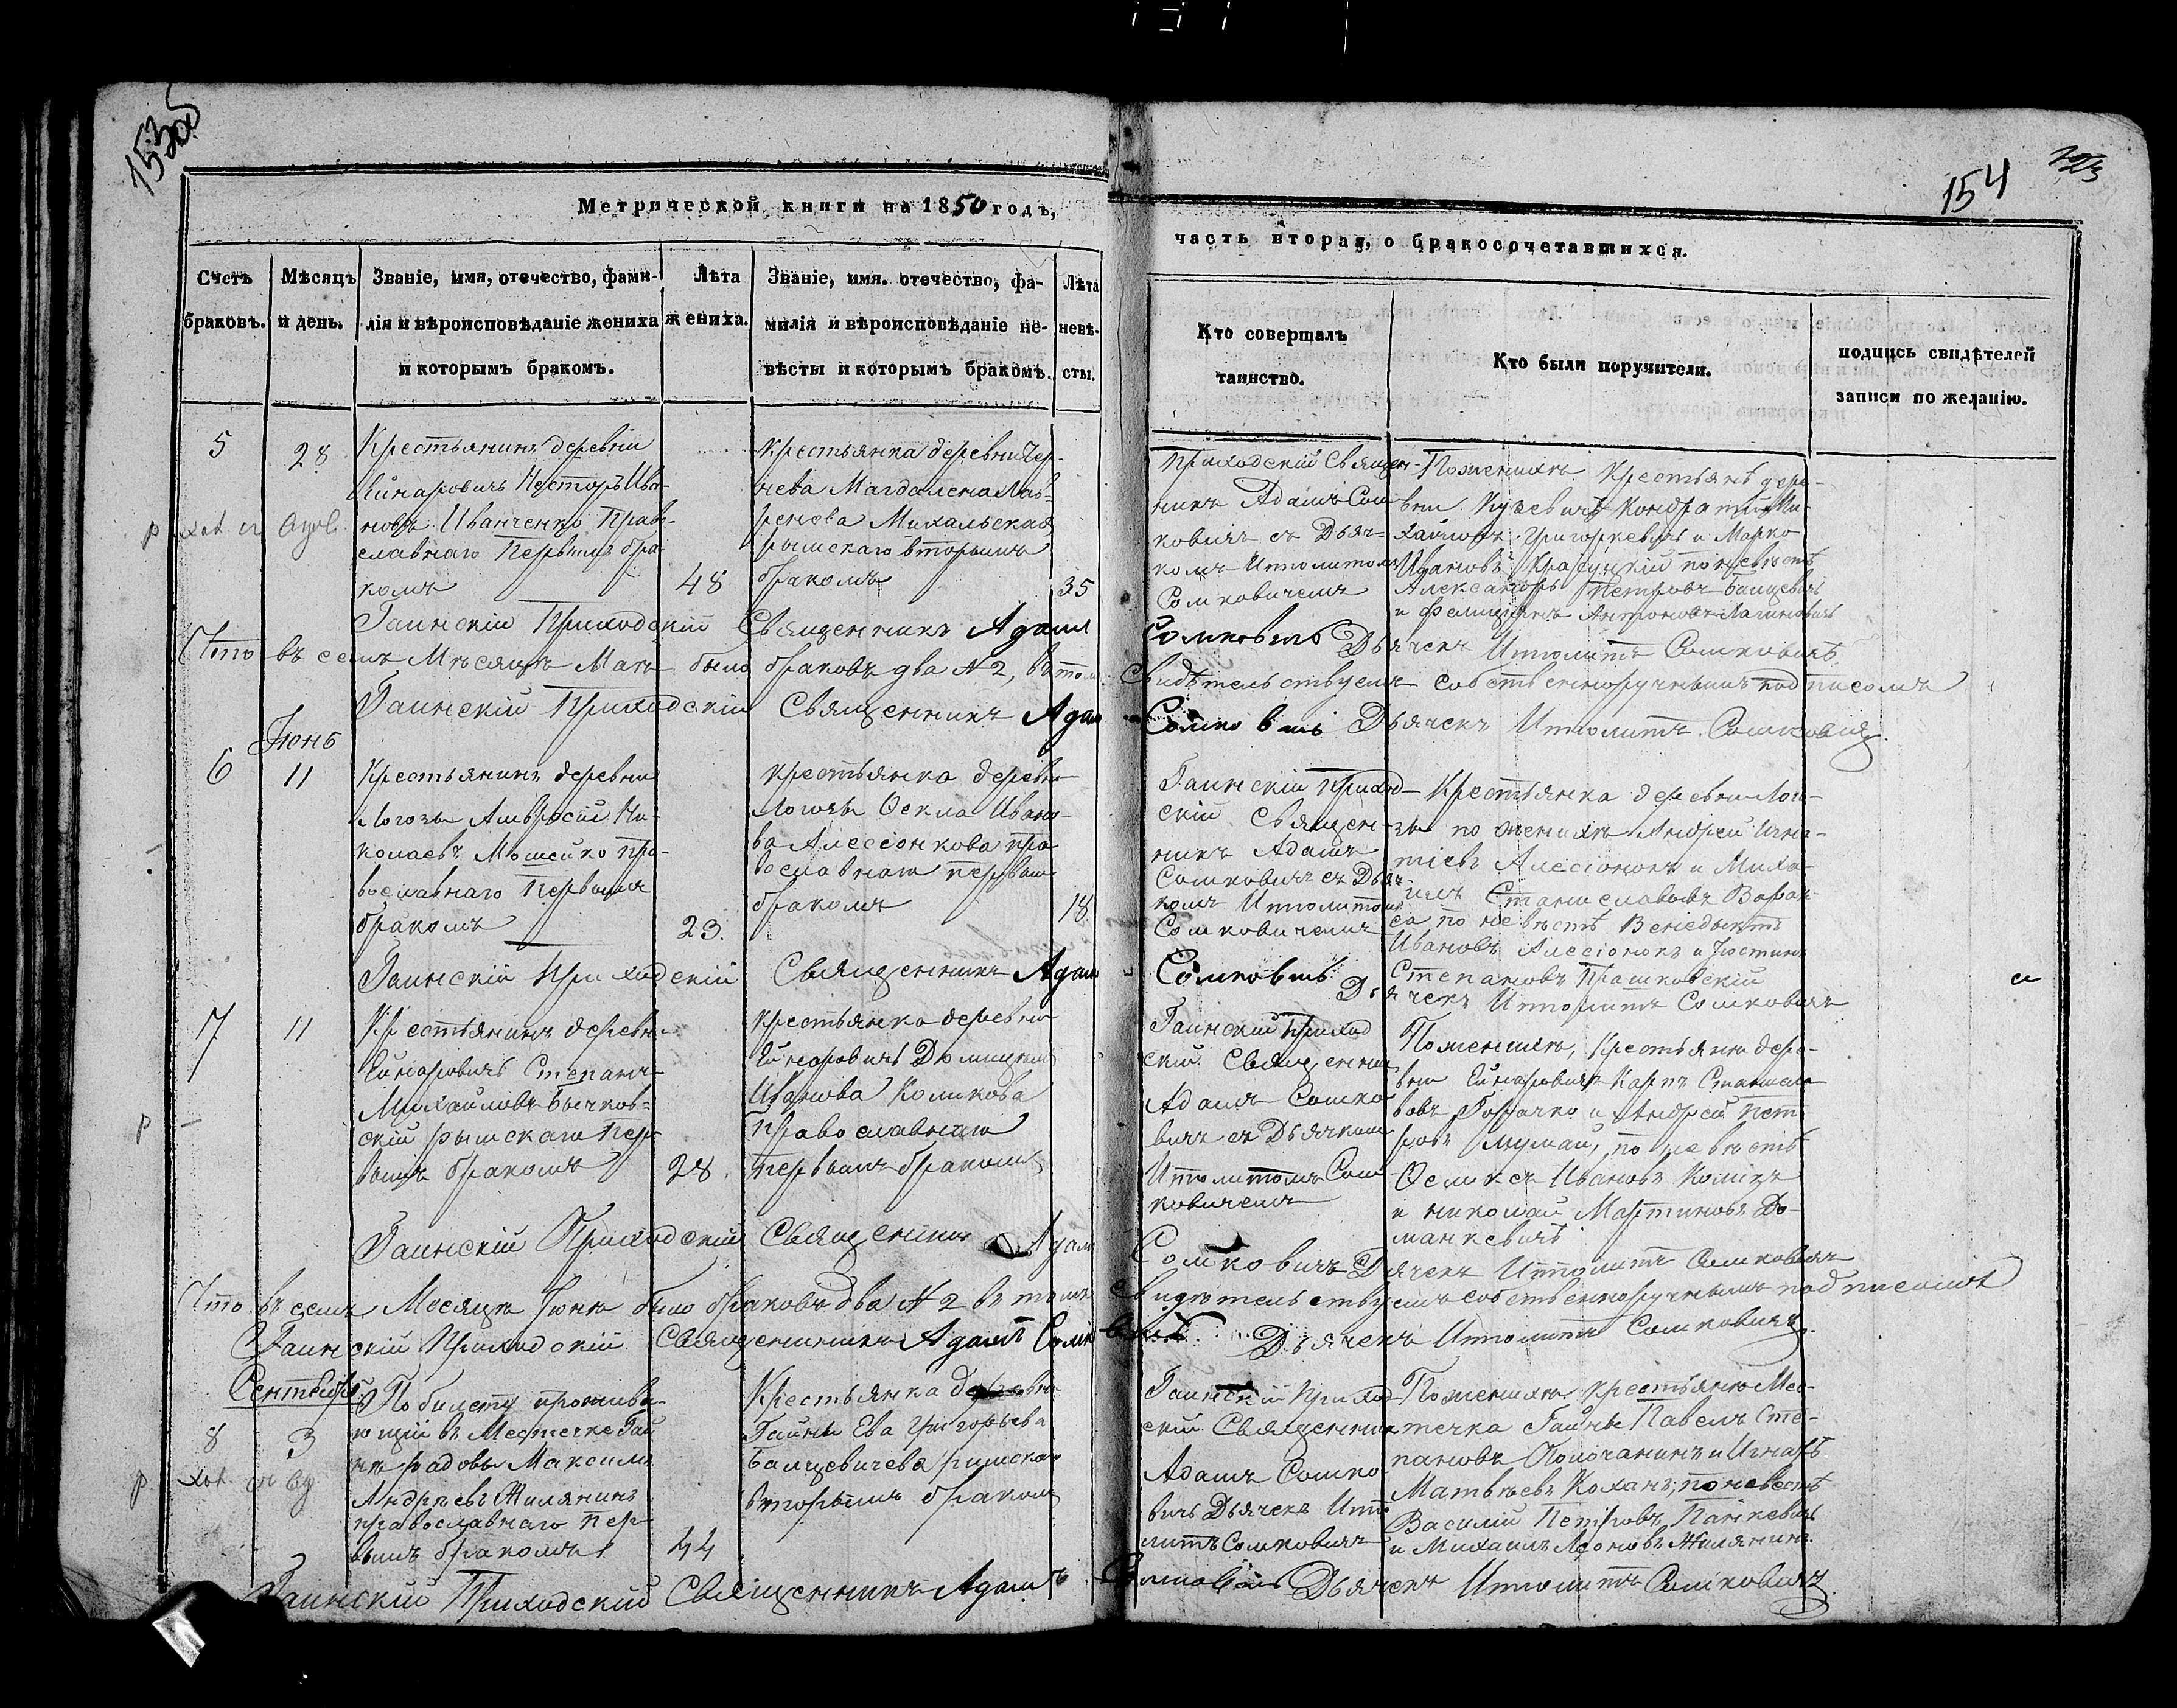 154
Метрической книги на 1850 годъ,
часть вторая, о бракосочетавшихся.
Счетъ браковъ.
Мѣсяцъ и день.
Званіе, имя, отечество, фами-
лія и вѣроисповѣданіе жениха
и которымъ бракомъ.
Лѣта жениха.
Званіе, имя. отечество, фа-
милія и вѣроисповѣданіе не-
вѣсты и которымъ бракомъ.
Лѣта невѣ-
сты.
Кто совершалъ
таинство.
Кто были поручители.
подпись свидѣтелей
записи по желанію.
5
28
Крестьянинъ деревни
Несторъ Ива-
новъ Иванченко Право-
славнаго Первымъ бра-
комъ
48
Крестьянка деревни Чер-
нева Магдалена Лав-
ренова Михальская
рымскаго вторымъ
бракомъ
35
Приходскій Священ-
никъ Адамъ Сом-
ковичъ съ Дьяч-
комъ Ипполитомъ
Сомковичемъ
По женихѣ Крестьянѣ дере-
вни Кондратій Ми-
хайловъ Григоркевичъ и Марко
Ивановъ по невѣстѣ
Александръ Петровъ Банцевичъ
и Антоновъ
Гаинскій Приходскій Священникъ Адамъ Сомковичъ Дьячекъ Ипполитъ Сомковичъ
Что въ семъ Мѣсяцѣ Маѣ было браковъ два № 2, въ томъ свидѣтельствуемъ собственноручнымъ подписомъ
Гаинскій Приходскій Священникъ Адамъ Сомковичъ Дьячекъ Ипполитъ Сомковичъ
Іюнь
6
11
Крестьянинъ деревни
Логозы Амвросій Ни-
колаевъ Мошейко пра-
вославнаго Первымъ
бракомъ
23.
крестьянка деревни
Логозы Оекла Ивано-
ва Алесіонкова пра
вославнаго первымъ
бракомъ
18.
Гаинскій приход-
скій Священ-
никъ Адамъ
Сомковичъ съ Дьяч-
комъ Ипполитомъ
Сомковичемъ
Крестьянка деревни Лого-
зы по женихѣ Андрей Игна-
тіевъ Алесіонокъ и Миха-
илъ Станиславовъ
по невѣстѣ Венедыктъ
Ивановъ Алесіонокъ и Іюстинъ
Степановъ Прашковскій
Гаинскій Приходскій Священникъ Адамъ Сомковичъ Дьячекъ Ипполитъ Сомковичъ
7
11
Крестьянинъ деревни
Степанъ
Михайловъ Бычков-
скій рымскаго пер-
вымъ бракомъ
28.
крестьянка деревни
Ивановна Коликова
Православнаго
первымъ бракомъ
Гаинскій Приход
скій Священникъ
Адамъ Сомко-
вичъ съ Дьячкомъ
Ипполитомъ Сом-
ковичемъ
По женихѣ, Крестьяни дере-
вни Карпъ Станисла-
вовъ Горачко и Андрей Пет-
ровъ по невѣстѣ
Ивановъ
и николай Мартиновъ До-
манкевичъ
Гаинскій Приходскій Священникъ Адамъ Сомковичъ Дьячекъ Ипполитъ Сомковичъ
Что въ семъ Месяцѣ Іюнѣ было браковъ два № 2 въ томъ свидѣтельствуемъ собственноручнымъ подписомъ
Гаинскій Приходскій Священникъ Адамъ Сомковичъ Дьячекъ Ипполитъ Сомковичъ.
Сентябрь
8
3
По билету прожива-
ющій въ Местечке Гай
нѣ рядовы Максимъ
Андрѣевъ Жилянинъ
православнаго пер-
вымъ бракомъ
44
Крестьянка деревни
Гайны Ева Григорьева
Банцевичева римскаго
вторымъ бракомъ
Гаинскій Приход-
скій Священникъ
Адамъ Сомко-
вичъ Дьячекъ Иппо
литъ Сомковичъ
По женихѣ крестьяне Мес-
течка Гайны Павелъ Сте-
пановъ Полочанинъ и Игнатъ
Матвѣевъ Коханъ; по невѣстѣ
Василій Петровъ Панкевичъ
и Михаилъ Леоновъ Жилянинъ.
Гаинскій Приходскій Священникъ Адамъ Сомковичъ Дьячекъ Ипполитъ Сомковичъ.